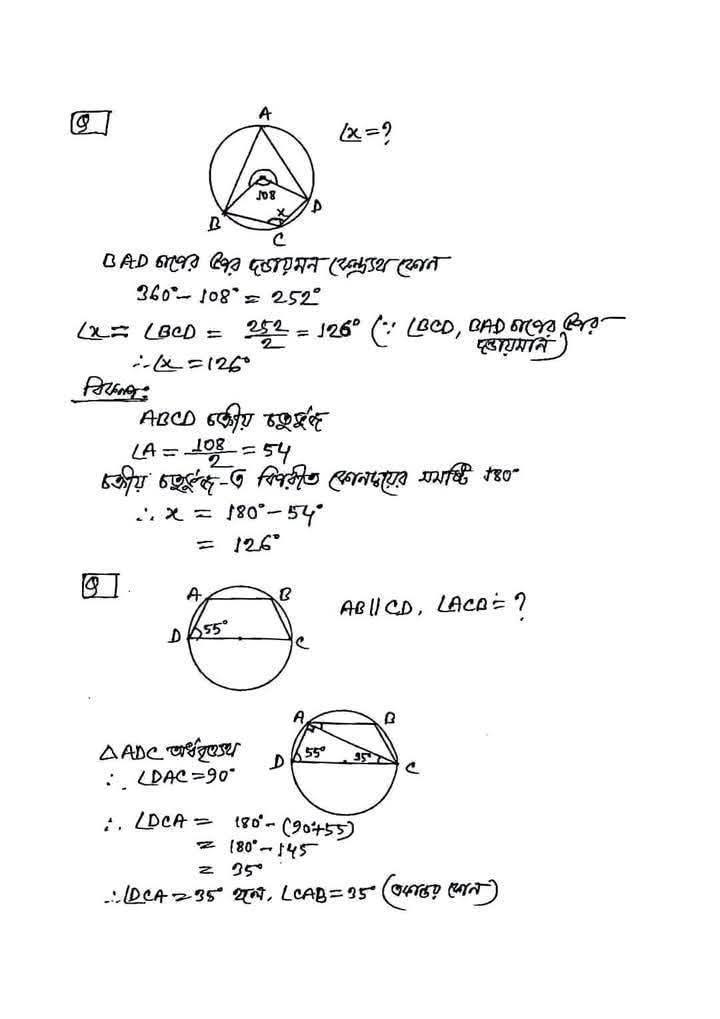 Q
A
∠x = ?
108
x
B
D
C
BAD চাপের উপর দন্ডায়মান কেন্দ্রস্থ কোন
360° - 108° = 252°
∠x = ∠BCD = 252/2 = 126° (∵ ∠BCD, BAD চাপের উপর দন্ডায়মান)
∴ ∠x = 126°
বিকল্প:
ABCD বৃত্তীয় চতুর্ভুজ
∠A = 108/2 = 54
বৃত্তীয় চতুর্ভুজ-এ বিপরীত কোনদ্বয়ের সমষ্টি 180°
∴ x = 180° - 54°
= 126°
Q
A B
AB || CD, ∠ACB = ?
D 55° C
A B
△ADC অর্ধবৃত্তস্থ
D 55° 35° C
∴ ∠DAC = 90°
∴ ∠DCA = 180° - (90+55)
= 180° - 145
= 35°
∴ ∠DCA = 35° হলে, ∠CAB = 35° (একান্তর কোন)